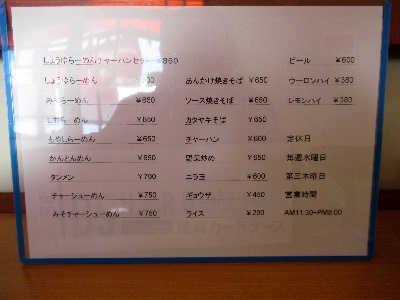 しょうゆらーめんチャーハンセット ¥850
ビール ¥600
しょうゆらーめん
あんかけ焼きそば ¥650
ウーロンハイ ¥380
みそらーめん ¥650
ソース焼きそば ¥650
レモンハイ ¥380
しおらーめん ¥650
カタヤキそば ¥650
もやしらーめん ¥650
チャーハン ¥600
定休日
かんとんめん ¥650
野菜炒め ¥650
毎週水曜日
タンメン ¥700
ニラ玉 ¥600
第三木曜日
チャーシューめん ¥750
ギョウザ ¥450
営業時間
みそチャーシューめん ¥750
ライス ¥200
AM11:30~PM8:00